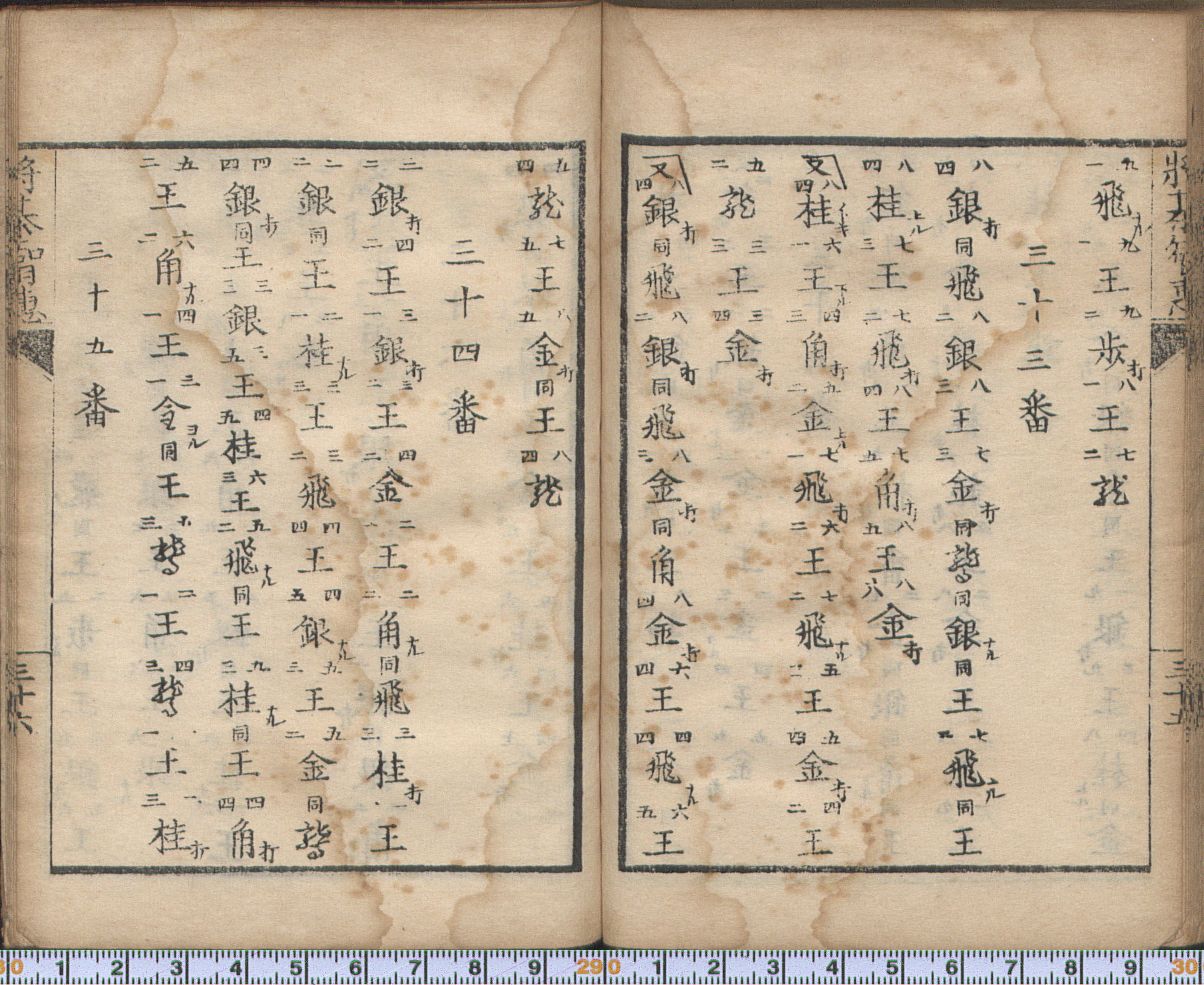 将棊智惠 三十五
九一飛ナル 九一王 九二歩打 八一王 七二龍
三十三番
八四銀打 同飛 八二銀 八三王 七三金打 同馬 同銀ナル 同王 七二飛ナル 同王
八四桂上ル 七三王 七二飛打 八四王 七五角打 八五王 八六金打
又 八四桂 六一王 四三角打 五二金上ル 七一飛打 六二王 七二飛ナル 五二王 五四金打 四二王
又 八四銀打 同飛 八二銀打 同飛 八三金打 同角 八四金 六四王 四四飛ナル 六五王
五二龍 三三王 三四金打
五四龍 七五王 八五金打 同王 八四龍
三十四番
三二銀打 四二王 三一銀打 三二王 四二金 二一王 二二角ナル 同飛 三三桂打 一一王
二二銀 同王 二一桂ナル 三三王 三二飛 四四王 四五銀ナル 五三王 五二金 同馬
四四銀打 同王 三三銀 三五王 四五桂 六三王 五二飛ナル 同王 九三桂ナル 同王 四四角打
五二王 六二角ナル 四一王 三一金ヨル 同王 馬 二一王 四三馬 一王 一三桂打
三十五番
将棊智惠 三十六